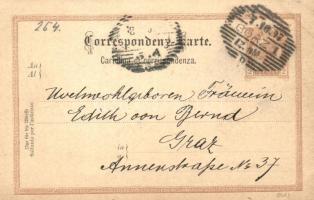 264.
Correspondenz-Karte.
Cartolina di corrispondenza.
An
Al
Uwelwohlgeboren Fräulein
Edith von Bernd
in
Graz
Annenstraße No 37
Nur für die Adresse
Soltanto per l'indirizzo